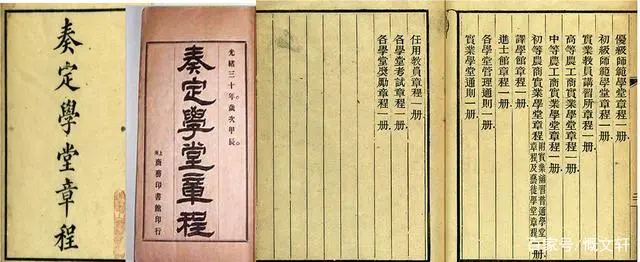 奏定學堂章程
光緒三十年。歲次甲辰。
奏定學堂章程
上海商務印書館印行
優級師範學堂章程一册
初級師範學堂章程一册
實業教員講習所章程一册
高等農工商實業學堂章程一册
中等農工商實業學堂章程一册
初等農商實業學堂章程附實業補習普通學堂章程及藝徒學堂章程一册
譯學館章程一册
進士館章程一册
各學堂管理通則一册
實業學堂通則一册
任用教員章程一册
各學堂考試章程一册
各學堂獎勵章程一册
百家号/慨文轩